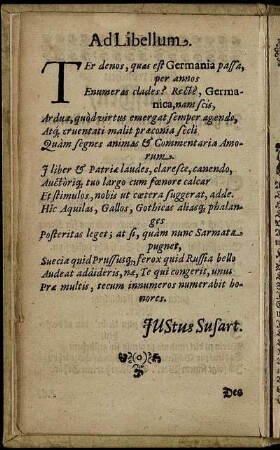 Ad Libellum.
TEr denos, quas est Germania passa,
per annos
Enumeras clades? Rectè, Germa-
nica, nam scis,
Ardua, quòd virtus emergat semper agendo,
Atq; cruentati malit præconia secli
Quàm segnes animas & Commentaria Amo-
rum.
I liber & Patriæ laudes, claresce, canendo,
Auctóriq; tuo largo cum fœnore calcar
Et stimulos, nobis ut cætera suggerat, adde.
Hîc Aquilas, Gallos, Gothicas aliasq; phalan-
ges
Posteritas leget; at si, quàm nunc Sarmata
pugnet,
Suecia quid Prussusq; ferox quid Russia bello
Audeat addideris, næ, Te qui congeris, unus
Præ multis, tecum innumeros numerabit ho-
nores.
JUStus Susart.
Des